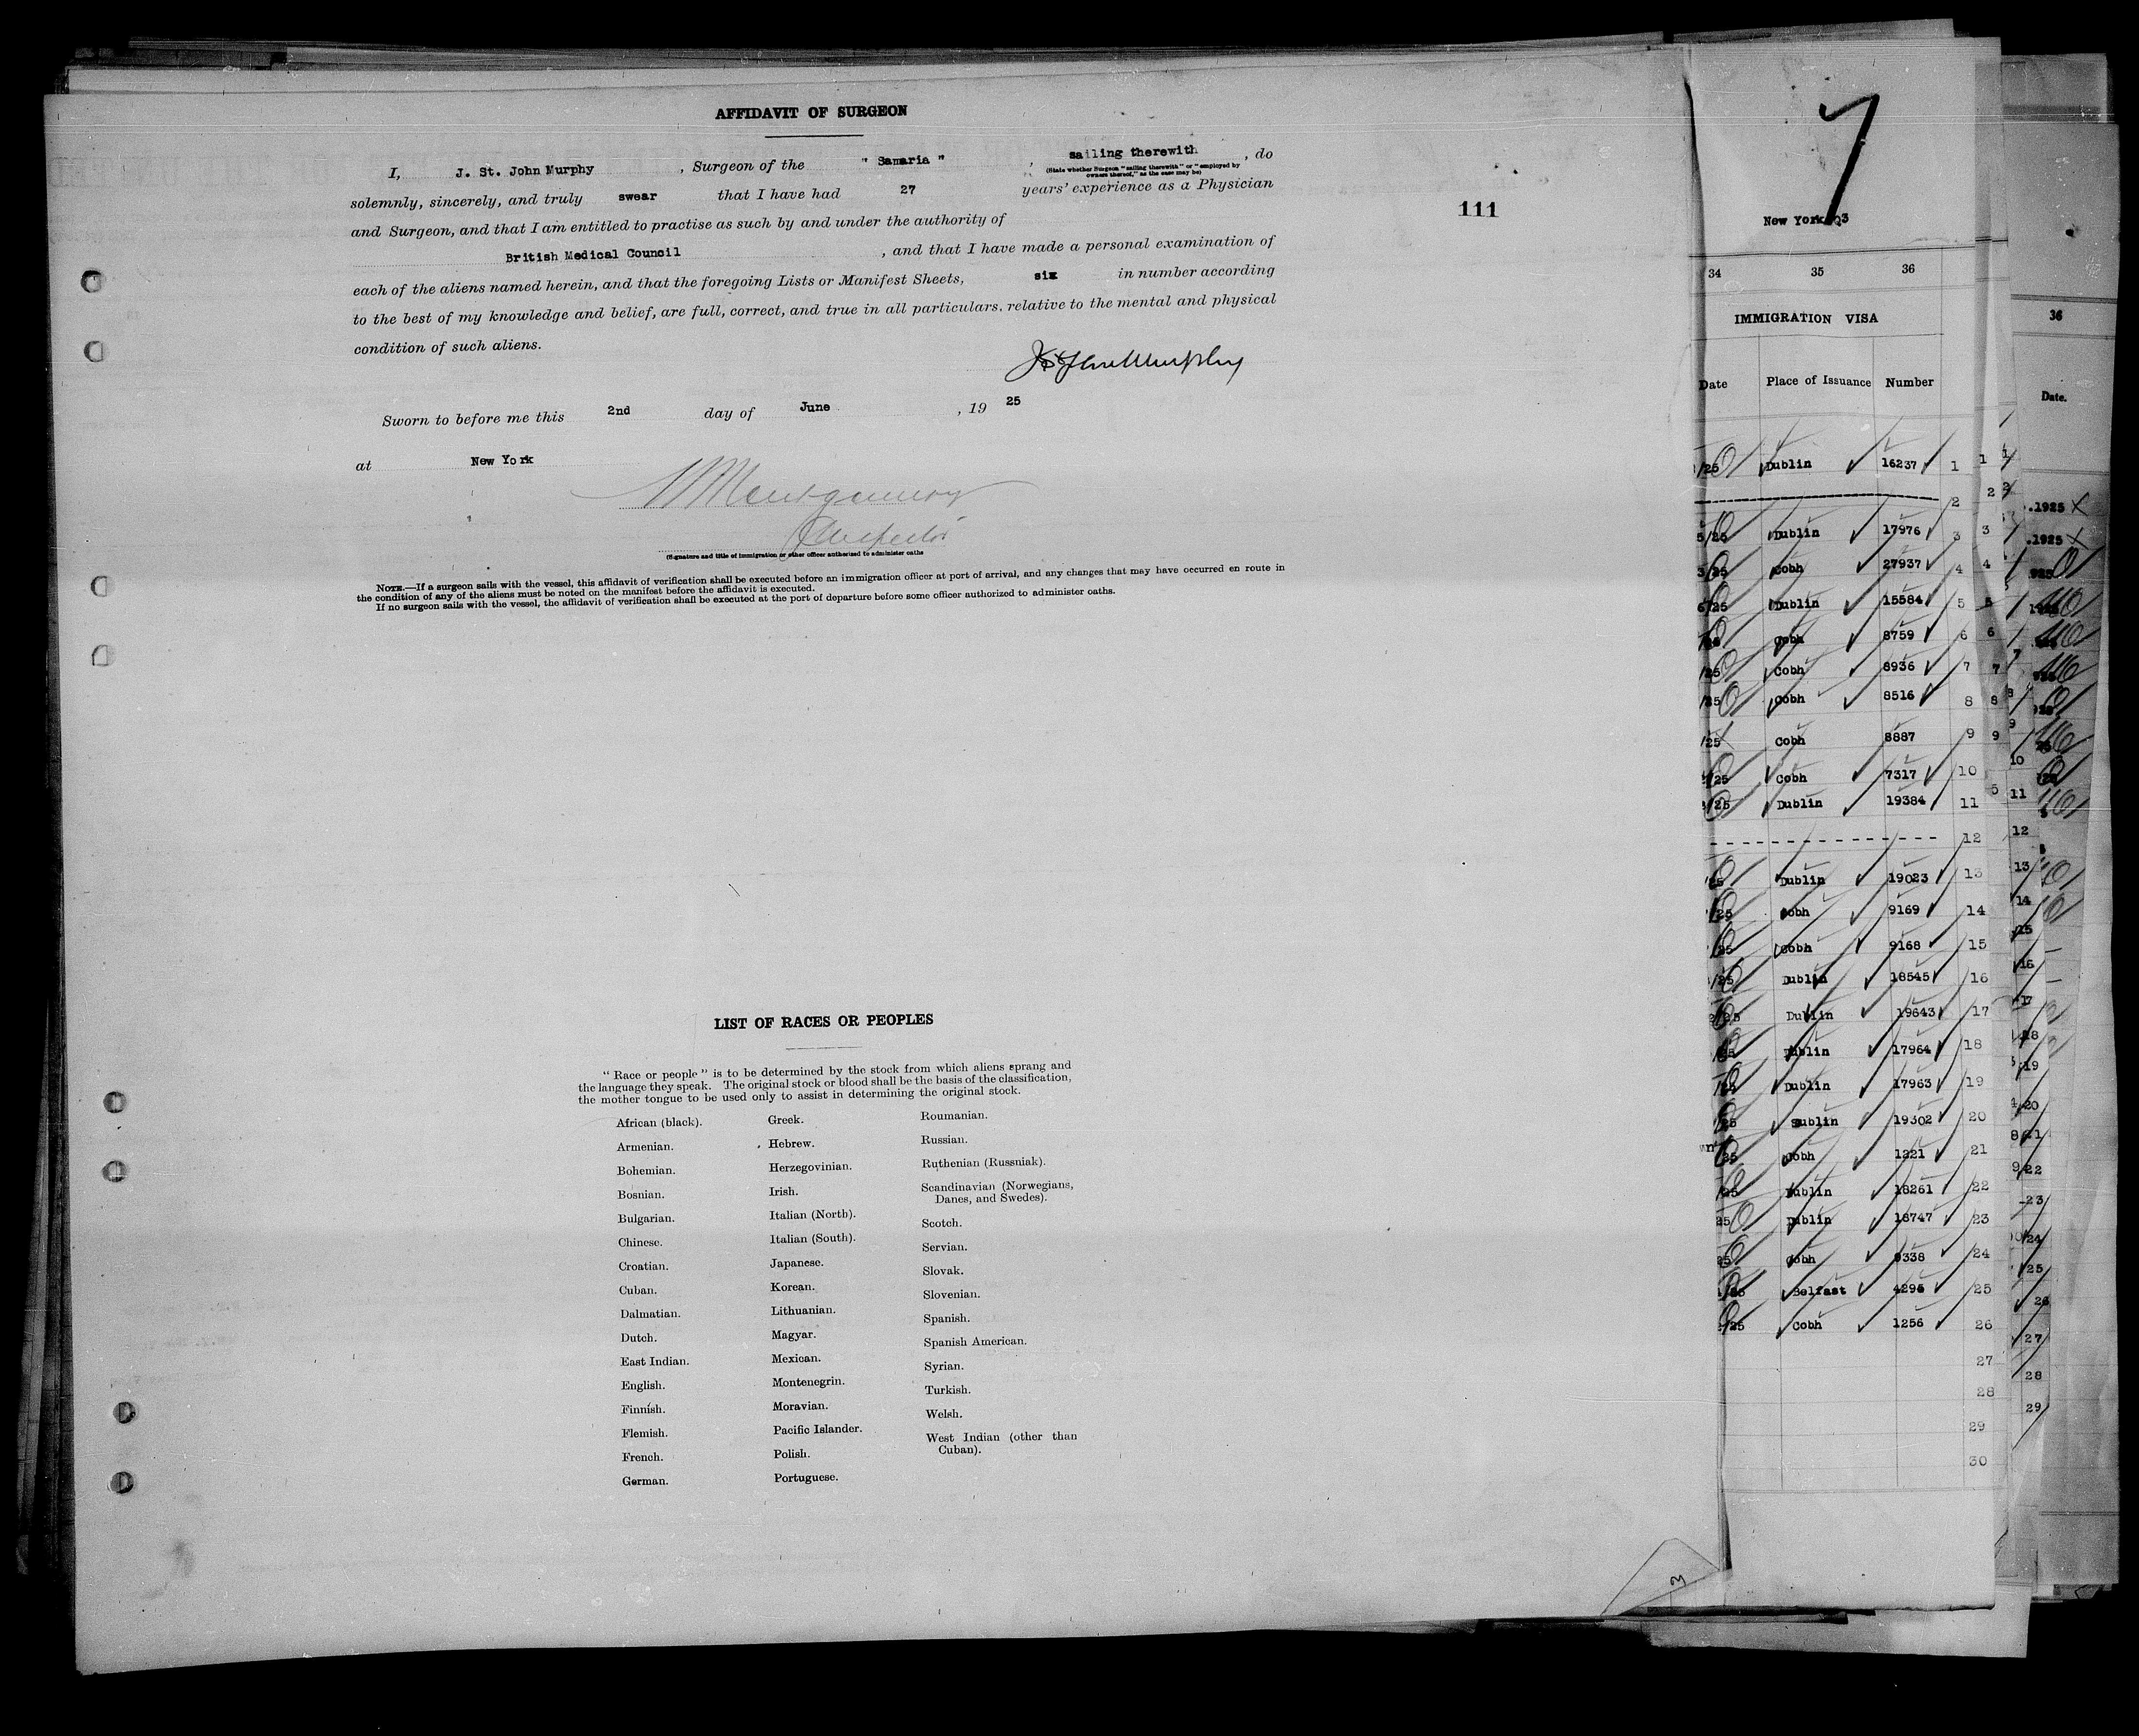 AFFIDAVIT OF SURGEON
I, J. St. John Murphy , Surgeon of the " Samaria " , sailing therewith , do
(State whether Surgeon "sailing therewith" or "employed by
owners thereof," as the case may be)
solemnly, sincerely, and truly swear that I have had 27 years' experience as a Physician
and Surgeon, and that I am entitled to practise as such by and under the authority of
British Medical Council , and that I have made a personal examination of
each of the aliens named herein, and that the foregoing Lists or Manifest Sheets, six in number according
to the best of my knowledge and belief, are full, correct, and true in all particulars, relative to the mental and physical
condition of such aliens.
J. St John Murphy
Sworn to before me this 2nd day of June , 19 25
at New York
Montgomery
Inspector
(Signature and title of immigration or other officer authorized to administer oaths
NOTE.—If a surgeon sails with the vessel, this affidavit of verification shall be executed before an immigration officer at port of arrival, and any changes that may have occurred en route in
the condition of any of the aliens must be noted on the manifest before the affidavit is executed.
If no surgeon sails with the vessel, the affidavit of verification shall be executed at the port of departure before some officer authorized to administer oaths.
111
LIST OF RACES OR PEOPLES
" Race or people " is to be determined by the stock from which aliens sprang and
the language they speak. The original stock or blood shall be the basis of the classification,
the mother tongue to be used only to assist in determining the original stock.
African (black).
Armenian.
Bohemian.
Bosnian.
Bulgarian.
Chinese.
Croatian.
Cuban.
Dalmatian.
Dutch.
East Indian.
English.
Finnish.
Flemish.
French.
German.
Greek.
Hebrew.
Herzegovinian.
Irish.
Italian (North).
Italian (South).
Japanese.
Korean.
Lithuanian.
Magyar.
Mexican.
Montenegrin.
Moravian.
Pacific Islander.
Polish.
Portuguese.
Roumanian.
Russian.
Ruthenian (Russniak).
Scandinavian (Norwegians,
Danes, and Swedes).
Scotch.
Servian.
Slovak.
Slovenian.
Spanish.
Spanish American.
Syrian.
Turkish.
Welsh.
West Indian (other than
Cuban).
3
7
New York 3
34 35 36
IMMIGRATION VISA
Date Place of Issuance Number
/25 Dublin 16237 1
2
5/25 Dublin 17976 3
3/25 Cobh 27937 4
6/25 Dublin 15584 5
Cobh 8759 6
/25 Cobh 8936 7
/25 Cobh 8516 8
/25 Cobh 8887 9
/25 Cobh 7317 10
/25 Dublin 19384 11
12
/25 Dublin 19023 13
/25 Cobh 9169 14
/25 Cobh 9168 15
/25 Dublin 18545 16
/25 Dublin 19643 17
/25 Dublin 17964 18
/25 Dublin 17963 19
/25 Dublin 19302 20
/25 Cobh 1221 21
/25 Dublin 18261 22
25 Dublin 18747 23
25 Cobh 9338 24
/25 Belfast 4295 25
/25 Cobh 1256 26
27
28
29
30
36
Date.
.1925
.1925